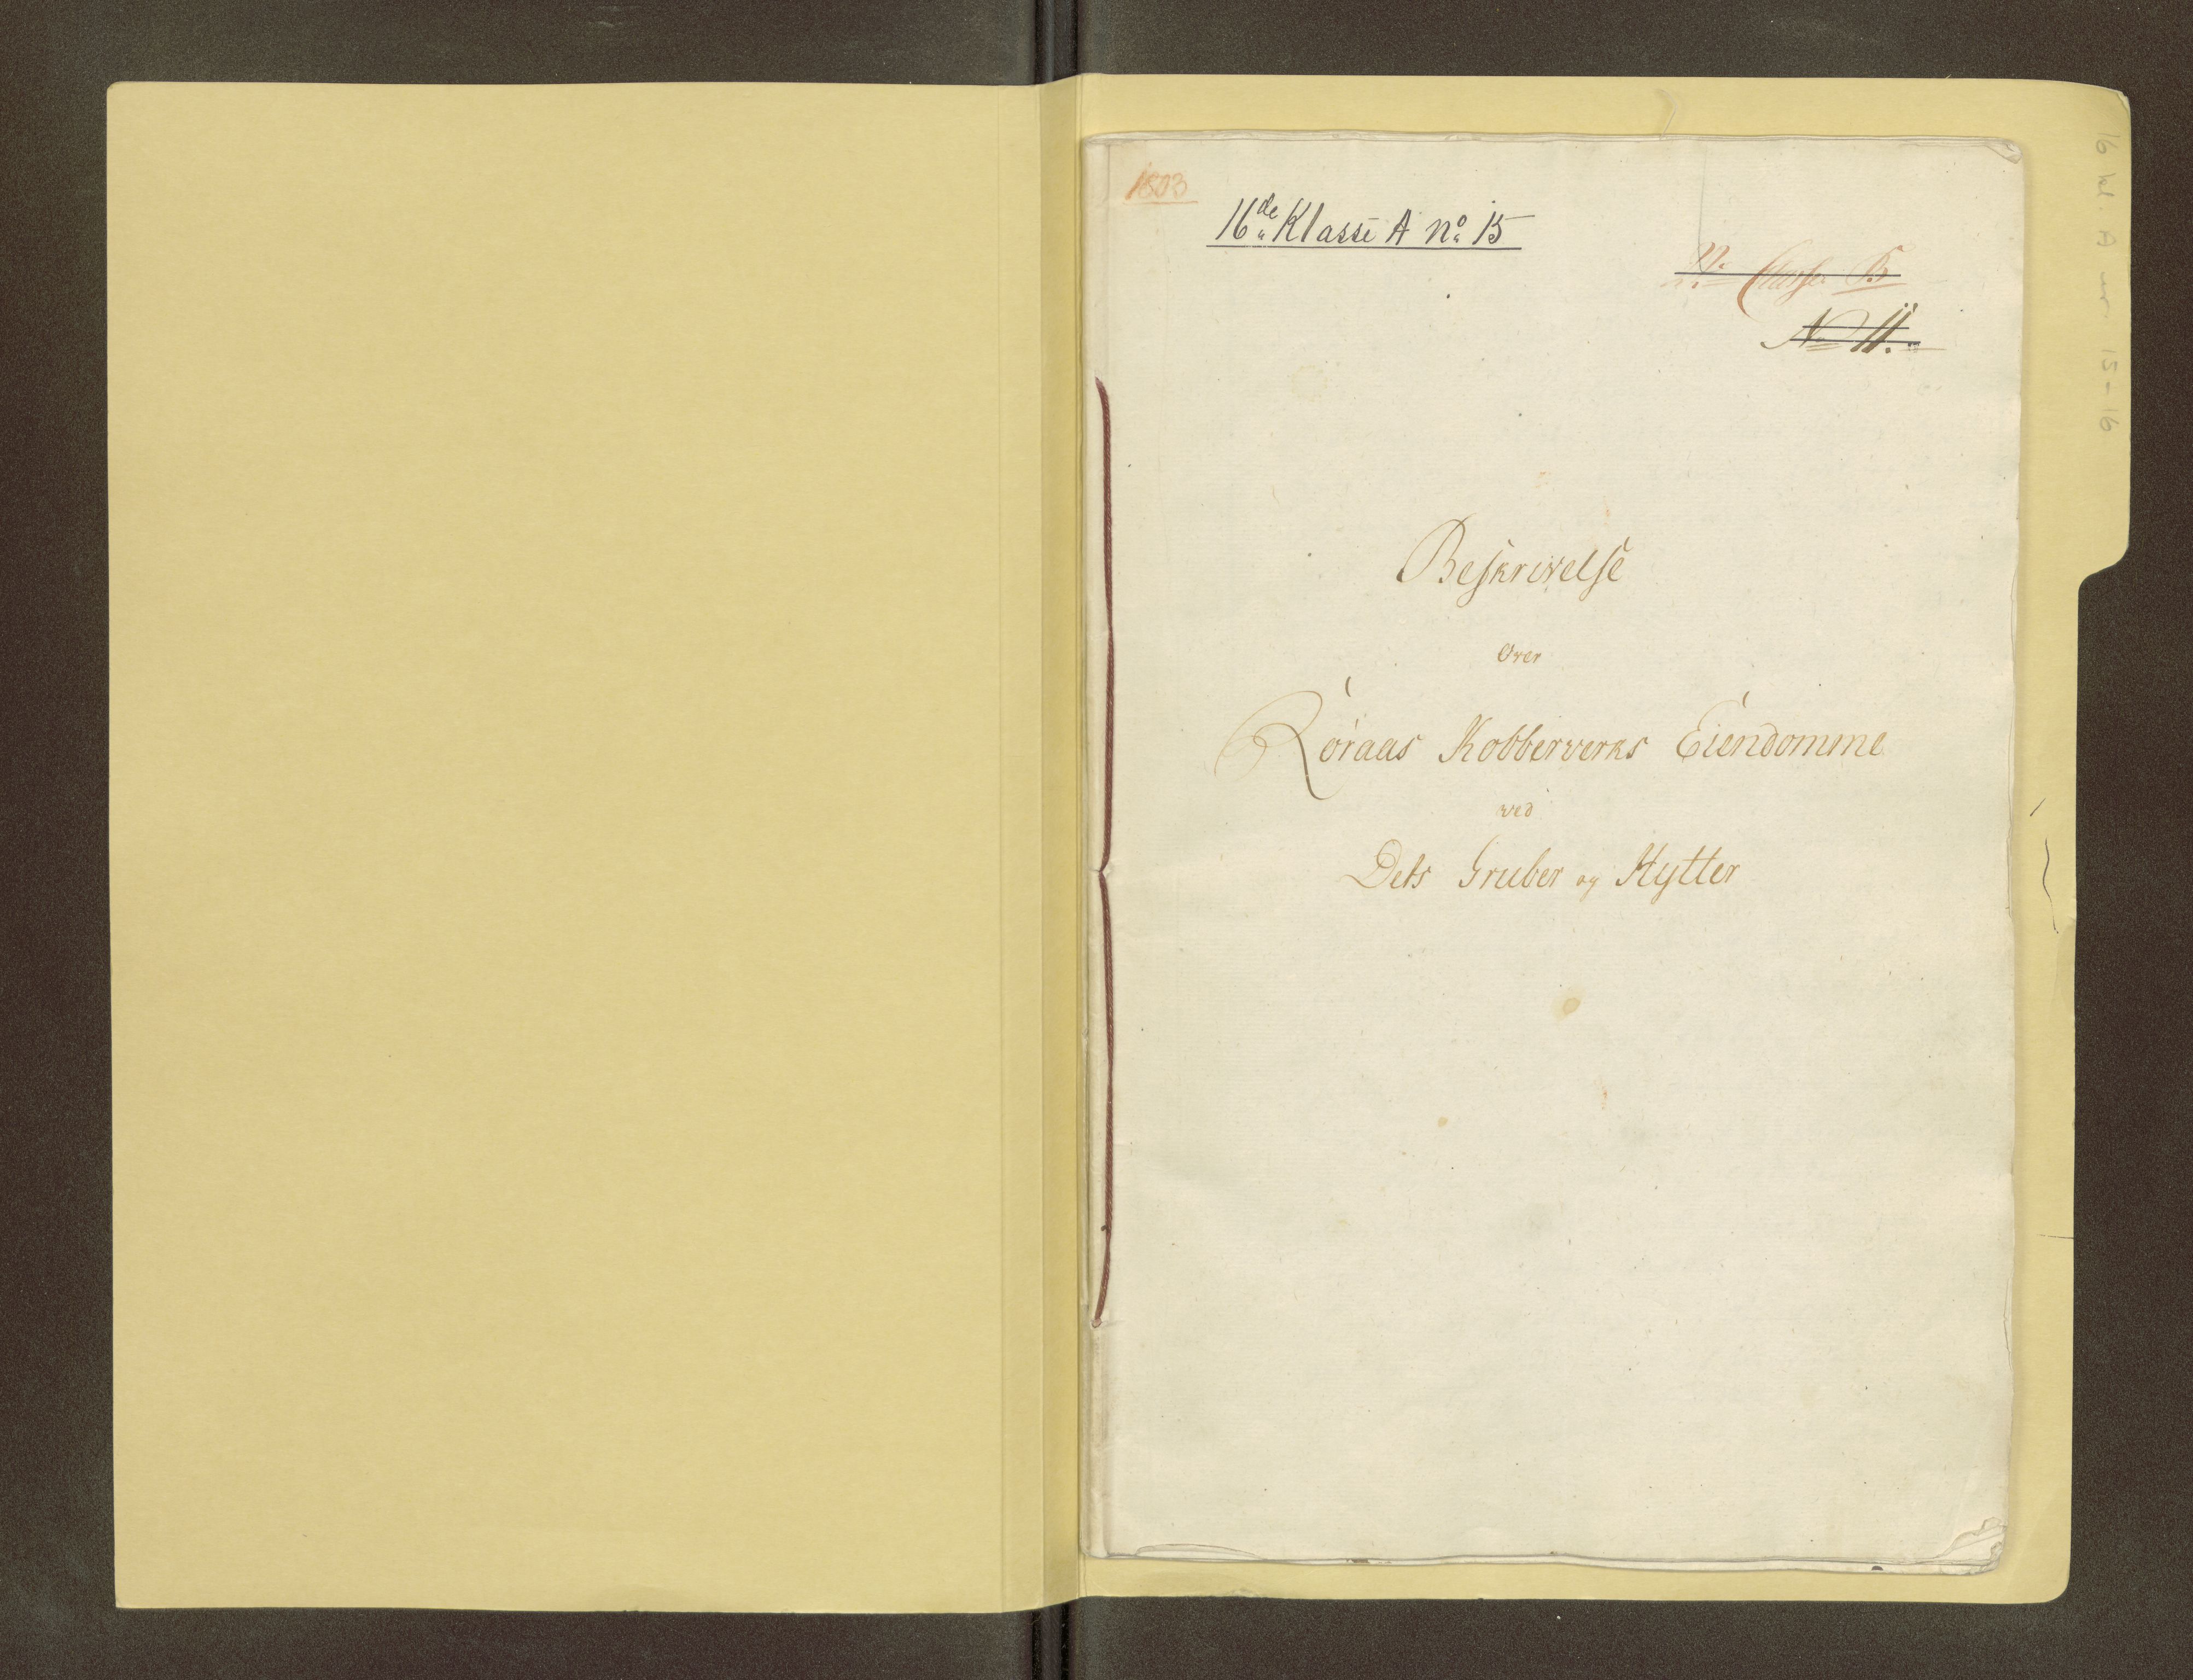 1803
16de Klasse A No 15
Classe B
No 11.
Beskrivelse
Over
Röraas Kobberverks Eiendomme
ved
Dets Gruber og Hytter
16 kl. A nr 15-16